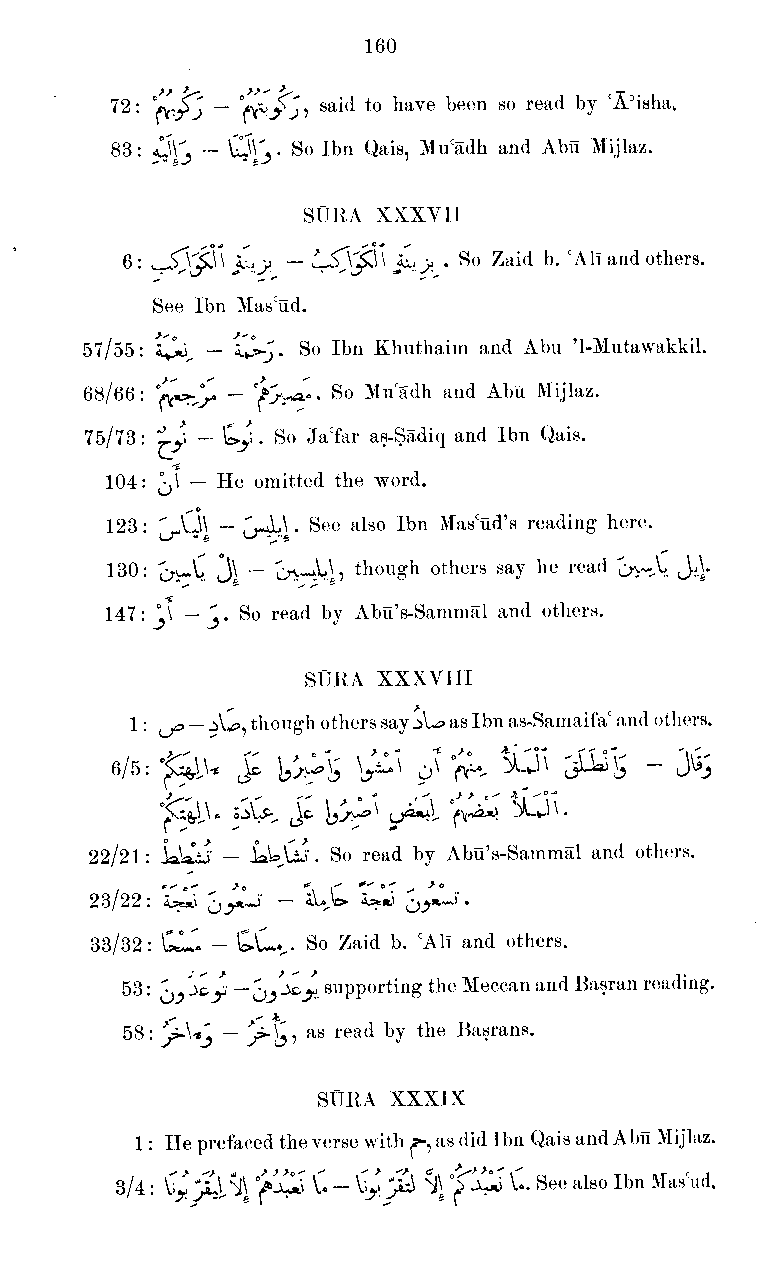 160
72: رَكُوبُهُمْ — رَكُوبَتُهُمْ, said to have been so read by ʿĀʾisha.
83: وَإِلَيْهِ — وَإِلَيْنَا. So Ibn Qais, Muʿādh and Abū Mijlaz.
SŪRA XXXVII
6: بِزِينَةٍ ٱلْكَوَاكِبِ — بِزِينَةٍ ٱلْكَوَاكِبُ. So Zaid b. ʿAlī and others.
See Ibn Masʿūd.
57/55: نِعْمَةُ — رَحْمَةُ. So Ibn Khuthaim and Abu ’l-Mutawakkil.
68/66: مَرْجِعَهُمْ — مَصِيرَهُمْ. So Muʿādh and Abū Mijlaz.
75/73: نُوحٌ — نُوحًا. So Jaʿfar aṣ-Ṣādiq and Ibn Qais.
104: أَنْ — He omitted the word.
123: إِلْيَاسَ — إِبْلِيسَ. See also Ibn Masʿūd’s reading here.
130: إِلْ يَاسِينَ — إِبْلِيسِينَ, though others say he read إِيل يَاسِينَ.
147: أَوْ — وَ. So read by Abū’s-Sammāl and others.
SŪRA XXXVIII
1: ص — صَادِ, though others say صَادُ as Ibn as-Samaifaʿ and others.
6/5: وَٱنْطَلَقَ ٱلْمَلَأُ مِنْهُمْ أَنِ ٱمْشُوا وَٱصْبِرُوا عَلَى ءَالِهَتِكُمْ — وَقَالَ
ٱلْمَلَأُ بَعْضُهُمْ لِبَعْضٍ ٱصْبِرُوا عَلَى عِبَادَةِ ءَالِهَتِكُمْ.
22/21: تُشْطِطْ — تُشَاطِطْ. So read by Abū’s-Sammāl and others.
23/22: تِسْعُونَ نَعْجَةً — تِسْعُونَ نَعْجَةً حَامِلَةً.
33/32: مَسْحًا — مِسَاحًا. So Zaid b. ʿAlī and others.
53: تُوعَدُونَ — يُوعَدُونَ supporting the Meccan and Baṣran reading.
58: وَءَاخَرُ — وَأُخَرُ, as read by the Baṣrans.
SŪRA XXXIX
1: He prefaced the verse with حم, as did Ibn Qais and Abū Mijlaz.
3/4: مَا نَعْبُدُهُمْ إِلَّا لِيُقَرِّبُونَا — مَا نَعْبُدُكُمْ إِلَّا لِتُقَرِّبُونَا. See also Ibn Masʿud.